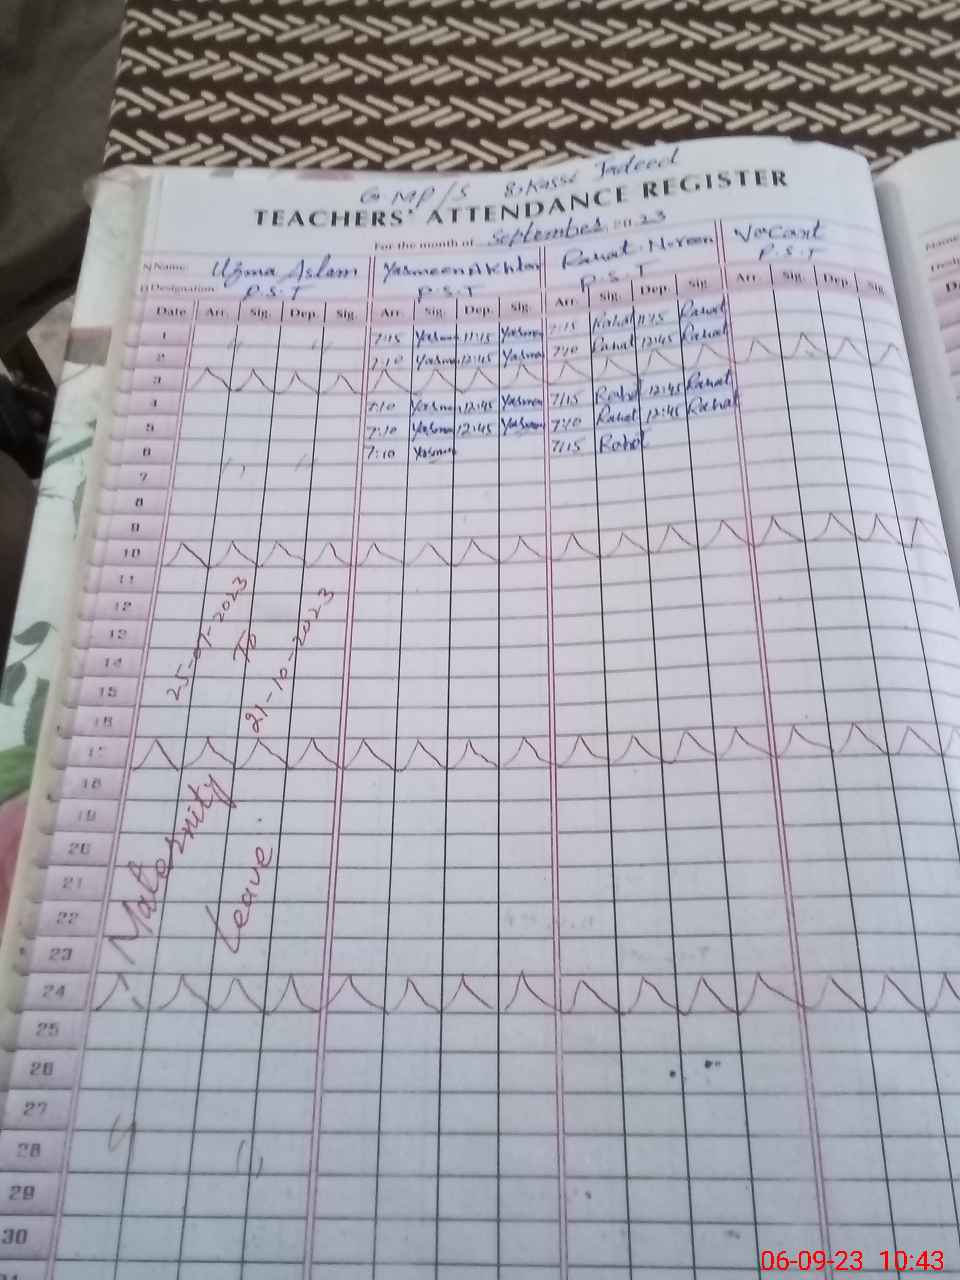 G MP/S
TEACHERS' ATTENDANCE REGISTER
For the month of September 2023
Name: Uzma Aslam Yasmeen Akhtar Rahat Noreen Vacant
Designation P.S.T P.S.T P.S.T P.S.T
Date Arr. Sig. Dep. Sig. Arr. Sig. Dep. Sig. Arr. Sig. Dep. Sig. Arr. Sig. Dep. Sig.
1 7:15 Yasmn 11:15 Yasmn 7:15 Rahat 11:15 Rahat
2 7:10 Yasmn 12:45 Yasmn 7:10 Rahat 12:45 Rahat
3
4 7:10 Yasmn 12:45 Yasmn 7:15 Rahat 12:45 Rahat
5 7:10 Yasmn 12:45 Yasmn 7:10 Rahat 12:45 Rahat
6 7:10 Yasmn 7:15 Rahat
7
8
9
10
11
12
13
14
15
16
17
18
19
20
21
22
23
24
25
26
27
28
29
30
25-07-2023
To
21-10-2023
Maternity
Leave
06-09-23 10:43